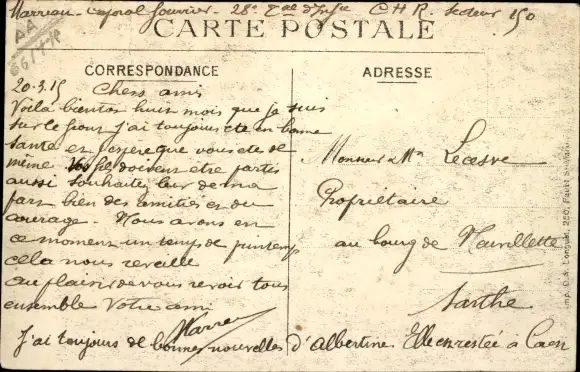 Marreau - caporal fourrier - 28e Tal d'Infie C H R - secteur 150
CARTE POSTALE
CORRESPONDANCE
ADRESSE
20-3-15 Chers amis
Voilà bientot huit mois que je suis
sur le front j'ai toujours été en bonne
santé et j'espère que vous de
même Vos fils doivent être partis
aussi souhaitez leur de ma
part bien des amitiés et du
courage. Nous avons en
ce moment un temps de printemps
cela nous réveille
au plaisir de vous revoir tous
ensemble Votre ami
Marreau
J'ai toujours de bonnes nouvelles d'Albertine. Elle en restée à Caen
Monsieur & Mm
Propriétaire
au bourg de
Sarthe
Imp. D. A. Longuet, 250, Faubg St-Martin